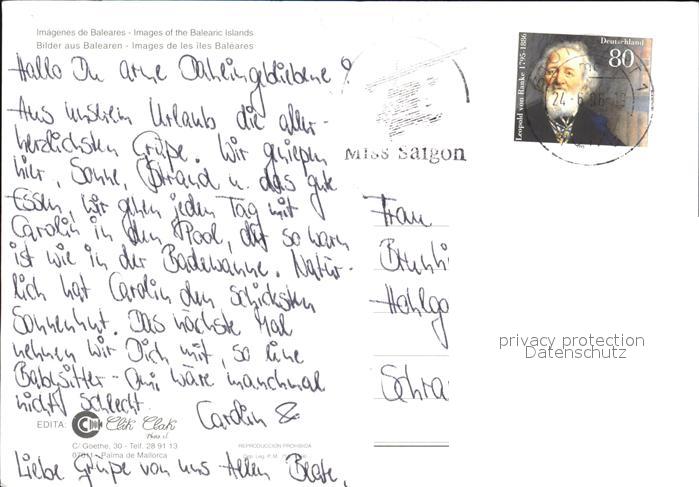 Imágenes de Baleares - Images of the Balearic Islands
Bilder aus Balearen - Images de les îles Baléares
Hallo Du arme Daheimgebliebene!
Aus unserem Urlaub die aller-
herzlichsten Grüße. Wir genießen
hier, Sonne, Strand u. das gute
Essen, wir gehen jeden Tag mit
Carolin in den Pool, der so warm
ist wie in der Badewanne. Natür-
lich hat Carolin den schicksten
Sonnenhut. Das nächste Mal
nehmen wir Dich mit, so eine
Babysitter-Omi wäre manchmal
nicht schlecht.
Carolin &
EDITA: Clik Clak
C/ Goethe, 30 - Telf. 28 91 13
07011 - Palma de Mallorca
REPRODUCCION PROHIBIDA
Dep. Leg. P.M.
Liebe Grüße von uns Allen Beate,
Miss Saigon
Deutschland
80
Leopold von Ranke 1795-1886
24.-6.96
Frau
Brunhi
Schra
privacy protection
Datenschutz